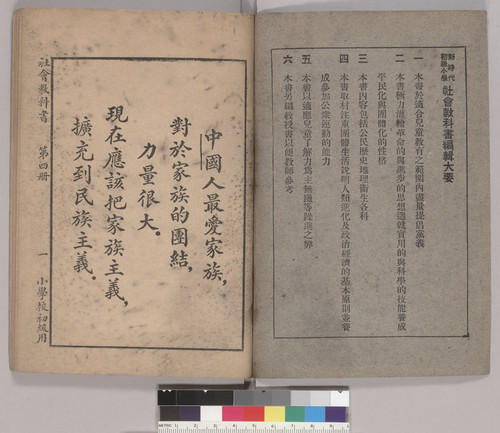 新時代
初級小學
社會教科書編輯大要
一 本書於適合兒童教育之範圍內盡量提倡黨義
二 本書極力灌輸革命的與進步的思想適就實用的與科學的技能養成
平民化與團體化的性格
三 本書內容包括公民歷史地理衛生各科
四 本書取材注重團體生活說明人類進化及政治經濟的基本原則並養
成參加公衆運動的能力
五 本書以適應兒童了解力爲主無獵等躁進之弊
六 本書另編教授書以便教師參考
中國人最愛家族，
對於家族的團結，
力量很大。
現在應該把家族主義，
擴充到民族主義。
社會教科書 第四册 一 小學校初級用